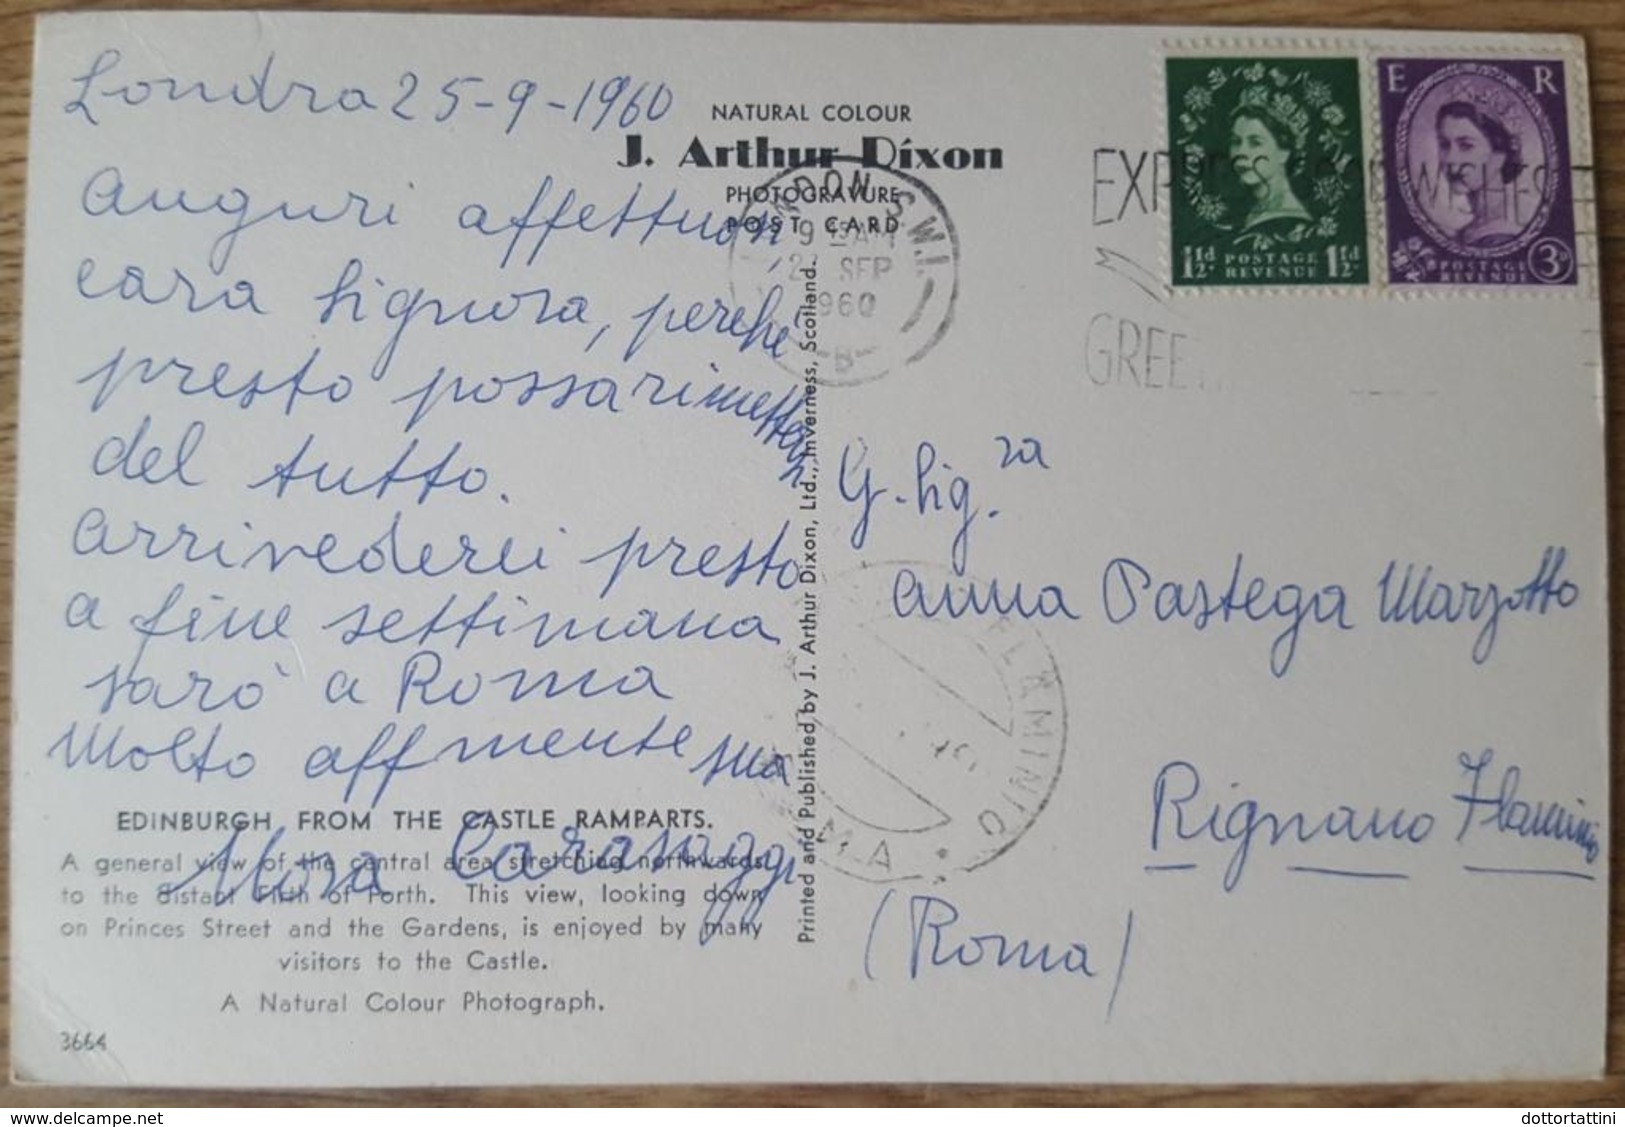 Londra 25-9-1960
Auguri affettuosi
cara Signora, perchè
presto possa rimettersi
del tutto.
Arrivederci presto
a fine settimana
sarò a Roma
Molto affmente sua
NATURAL COLOUR
J. Arthur Dixon
PHOTOGRAVURE
POST CARD
EDINBURGH FROM THE CASTLE RAMPARTS.
A general view of the central area stretching northwards
to the distant Firth of Forth. This view, looking down
on Princes Street and the Gardens, is enjoyed by many
visitors to the Castle.
A Natural Colour Photograph.
3664
Printed and Published by J. Arthur Dixon, Ltd., Inverness, Scotland.
LONDON S.W.1.
9 15 AM
SEP
1960
B
EXPRESS GOOD WISHES
GREE
1½d POSTAGE REVENUE 1½d
E R
POSTAGE REVENUE 3D
G. Sig.ra
Anna Pastega Marzotto
Rignano Flaminio
(Roma)
FLAMINIO
ROMA
dottortattini
www.delcampe.net